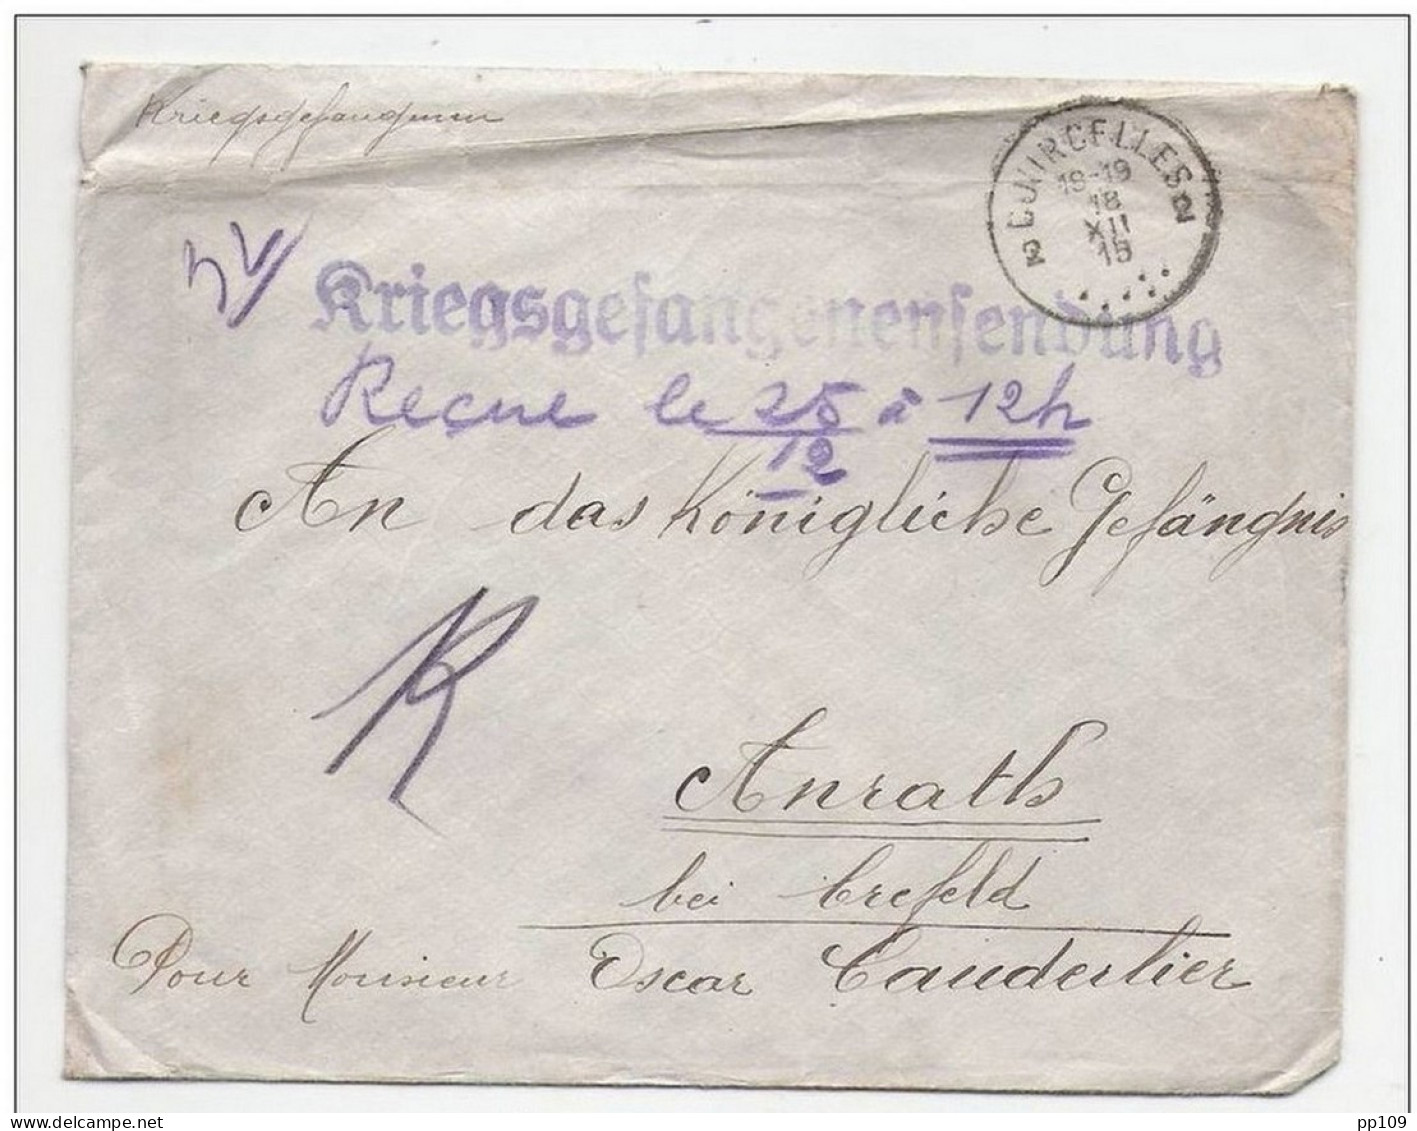 Kriegsgefangenen
COURCELLES
2 2
18-19
18
XII
15
Kriegsgefangenensendung
Reçue le 25/12 à 12h
An das Königliche Gefängnis
R
Anrath
bei Crefeld
Pour Monsieur Oscar Cauderlier
pp109